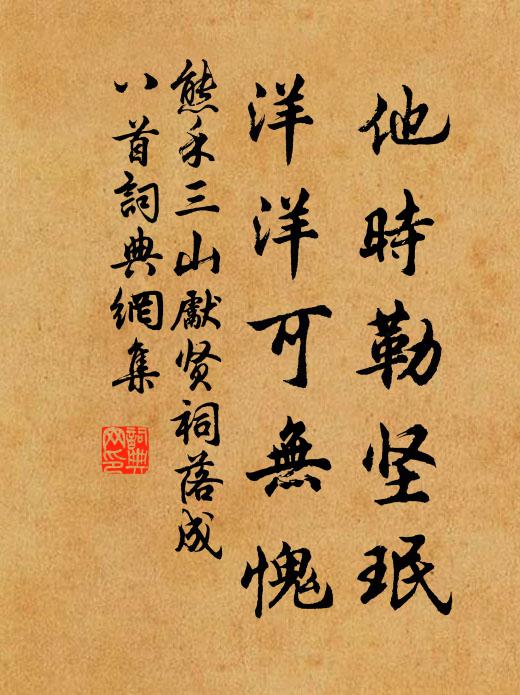 他時勒坚珉
洋洋可無愧
熊禾三山獻贤祠落成
八首詞典網集
詞典网印